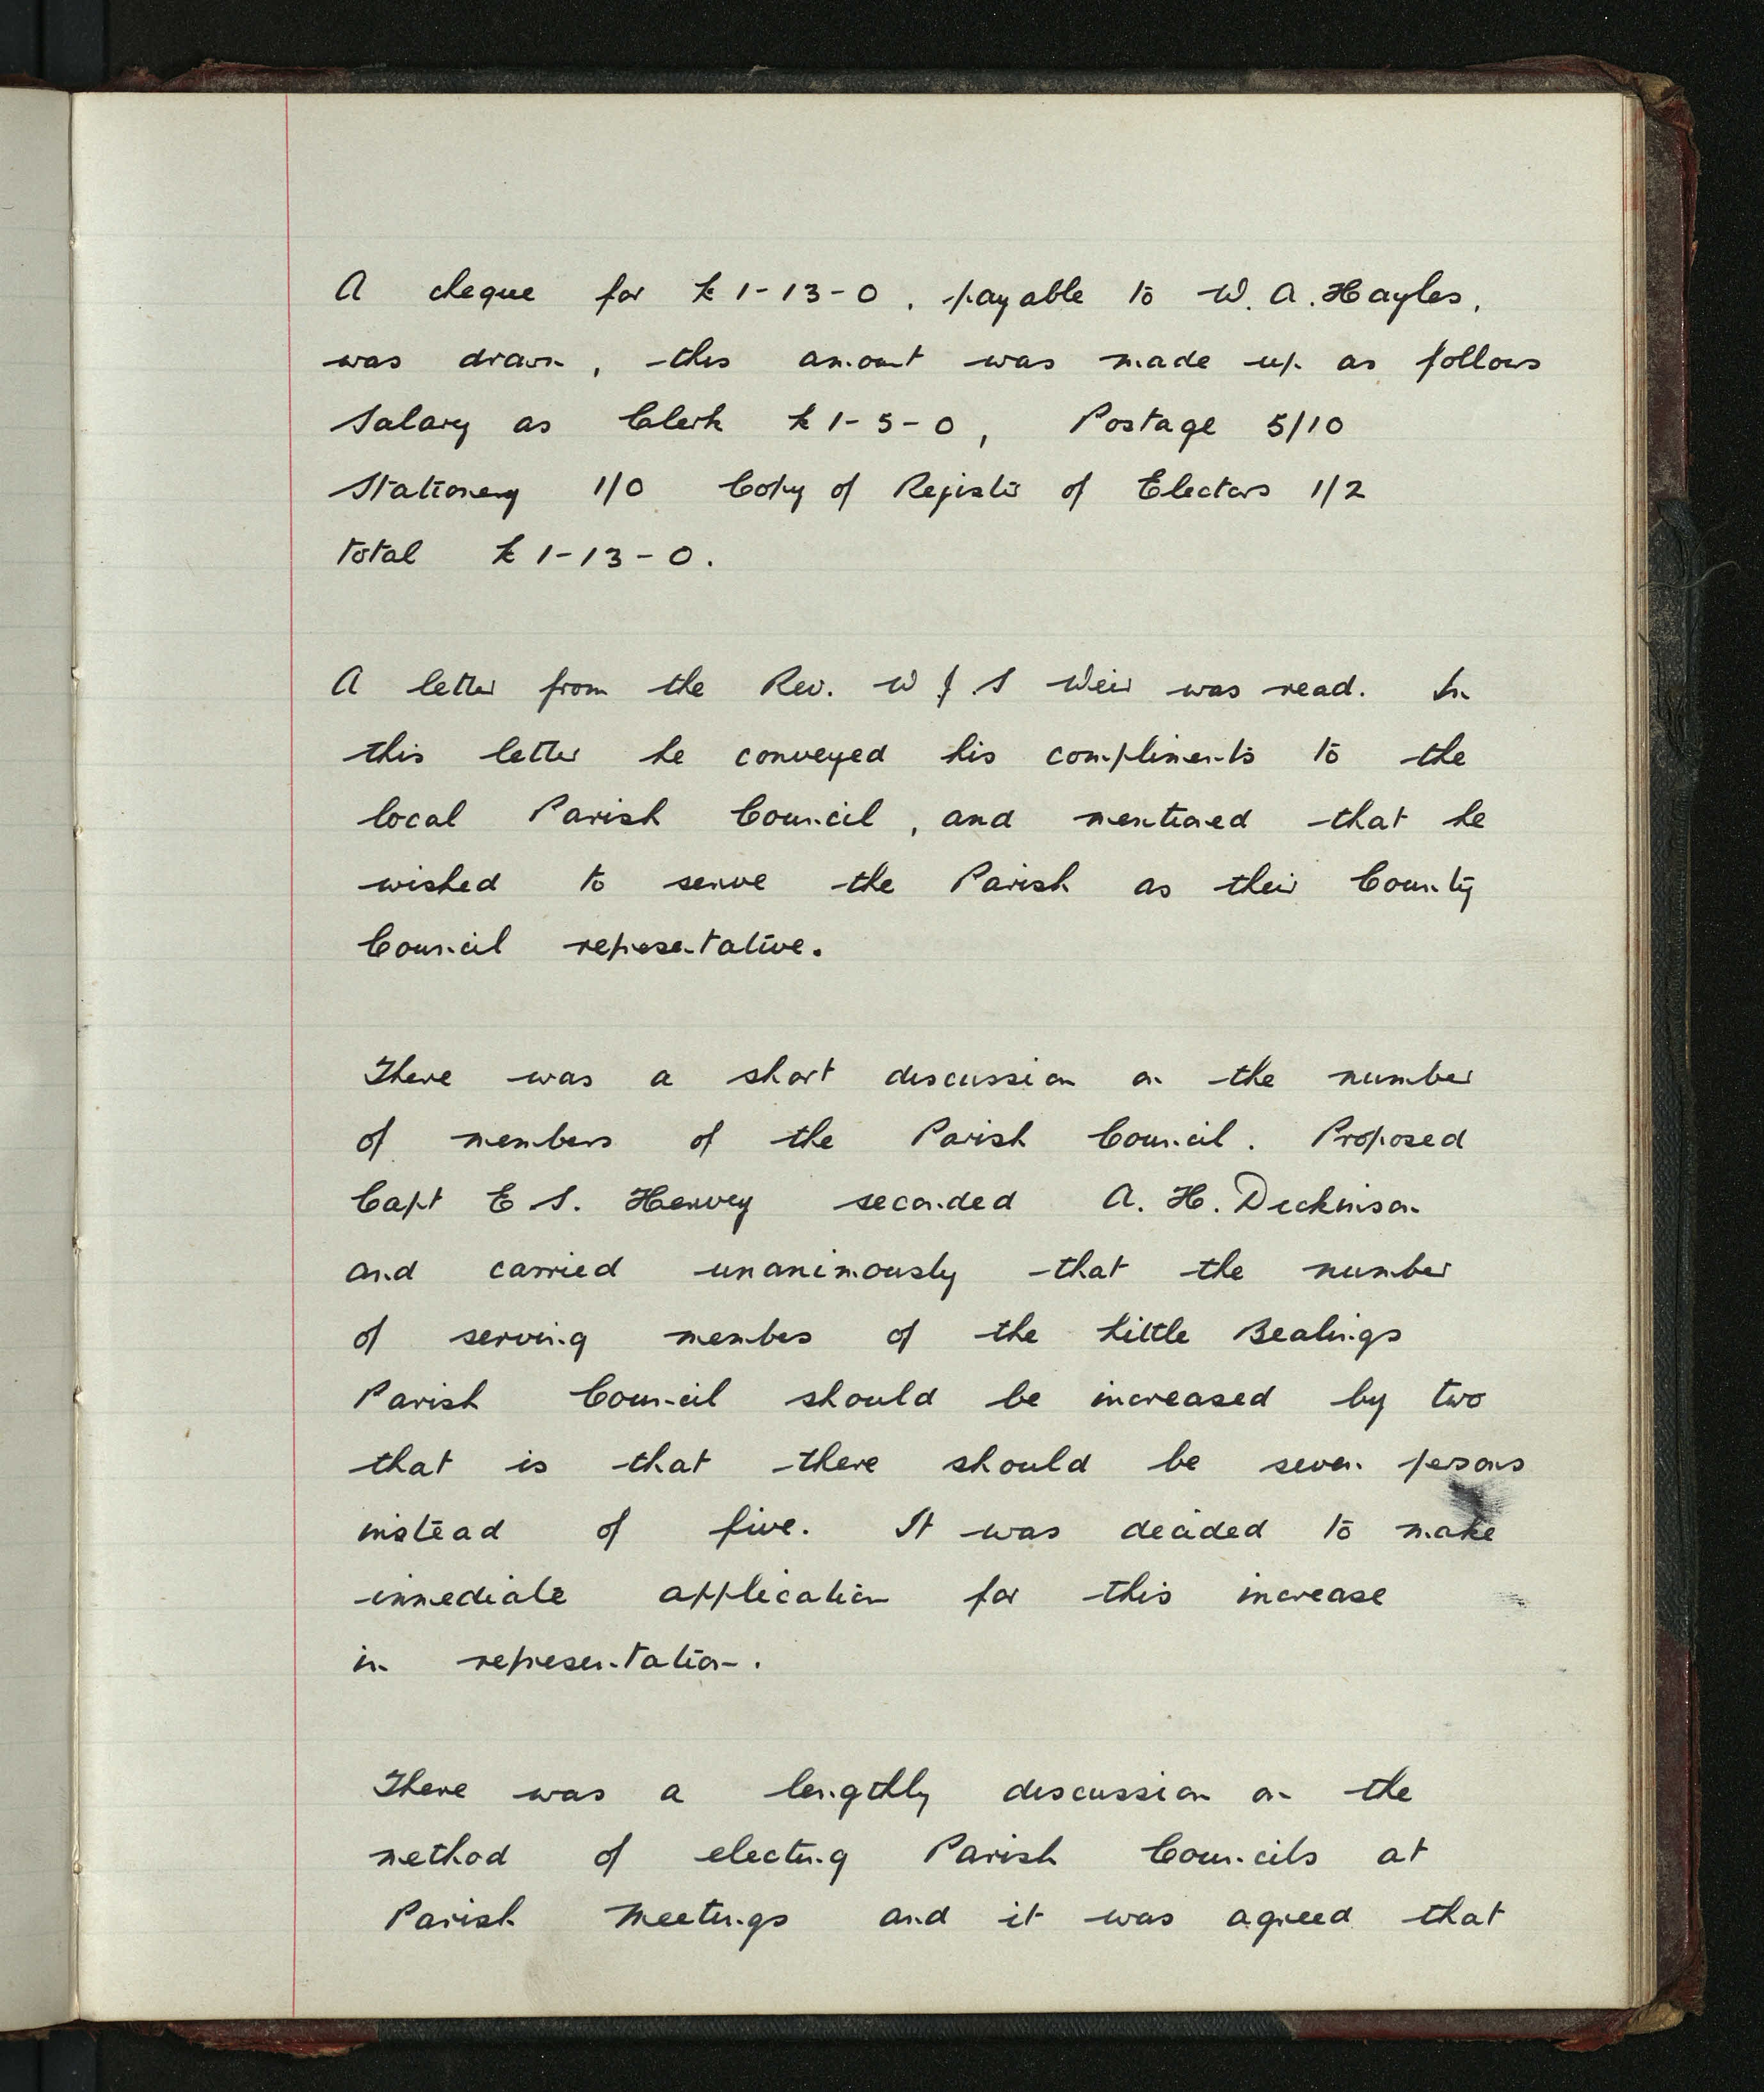 A cheque for £1-13-0, payable to W. A. Hayles,
was drawn, this amount was made up as follows
Salary as Clerk £1-5-0, Postage 5/10
Stationery 1/0 Copy of Register of Electors 1/2
total £1-13-0.
A letter from the Rev. W J S Weir was read. In
this letter he conveyed his compliments to the
local Parish Council, and mentioned that he
wished to serve the Parish as their County
Council representative.
There was a short discussion on the number
of members of the Parish Council. Proposed
Capt E S. Hervey seconded A. H. Dickinson
and carried unanimously that the number
of serving members of the Little Bealings
Parish Council should be increased by two
that is that there should be seven persons
instead of five. It was decided to make
immediate application for this increase
in representation.
There was a lengthly discussion on the
method of electing Parish Councils at
Parish Meetings and it was agreed that